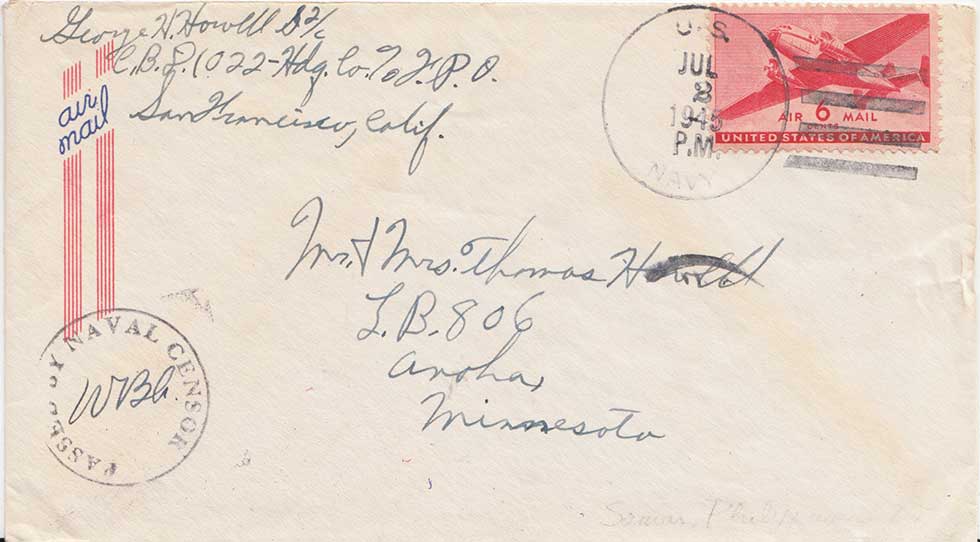 George H. Howell S 2/c
C.B. 1022 - Hdq. Co. % F.P.O.
San Francisco, Calif.
air
mail
U.S.
JUL
8
1945
P.M.
NAVY
AIR 6 MAIL
CENTS
UNITED STATES OF AMERICA
Mr. & Mrs. Thomas Howell
L.B. 806
Anoka,
Minnesota
PASSED BY NAVAL CENSOR
Samar, Philippines